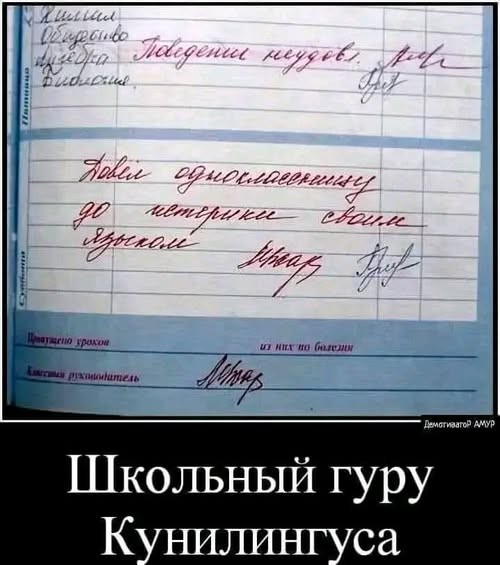 Химия
Общество
Алгебра Поведение неудовл.
Биология
Пятница
Довёл одноклассницу
до истерики своим
языком
Суббота
Пропущено уроков из них по болезни
Классный руководитель
Демотиватор АМУР
Школьный гуру
Кунилингуса